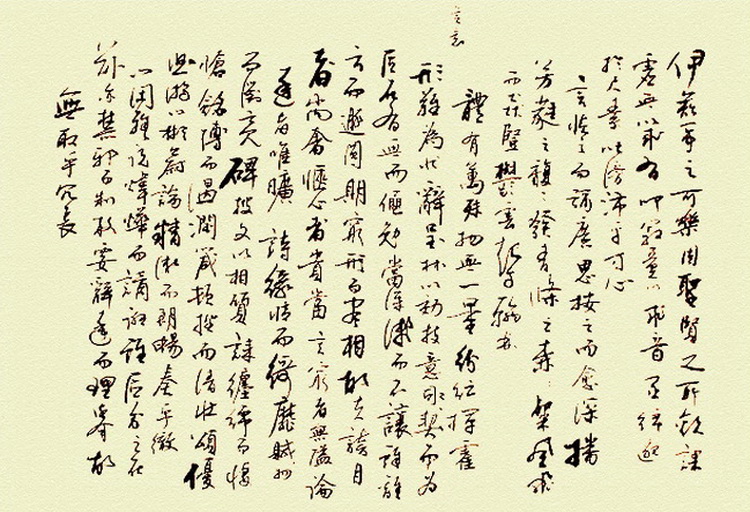 伊茲事之可樂固聖賢之所欽課
虛無以責有叩寂寞以求音函綿邈
於尺素吐滂沛乎寸心
言恢之而彌廣思按之而愈深播
芳蕤之馥馥發青條之森森粲風飛
而猋豎鬱雲起乎翰林
體有萬殊物無一量紛紜揮霍
形難為狀辭呈材以効技意司契而為
匠在有無而僶勉當淺深而不讓雖離
方而遯圓期窮形而盡相故夫誇目
者尚奢愜心者貴當言窮者無隘論
達者唯曠詩緣情而綺靡賦
而瀏亮碑披文以相質誄纏綿而悽
愴銘博而溫潤箴頓挫而清壯頌優
遊以彬蔚論精微而朗暢奏平徹
以閑雅說煒曄而譎誑雖區分之在
茲亦禁邪而制放要辭達而理舉故
無取乎冗長